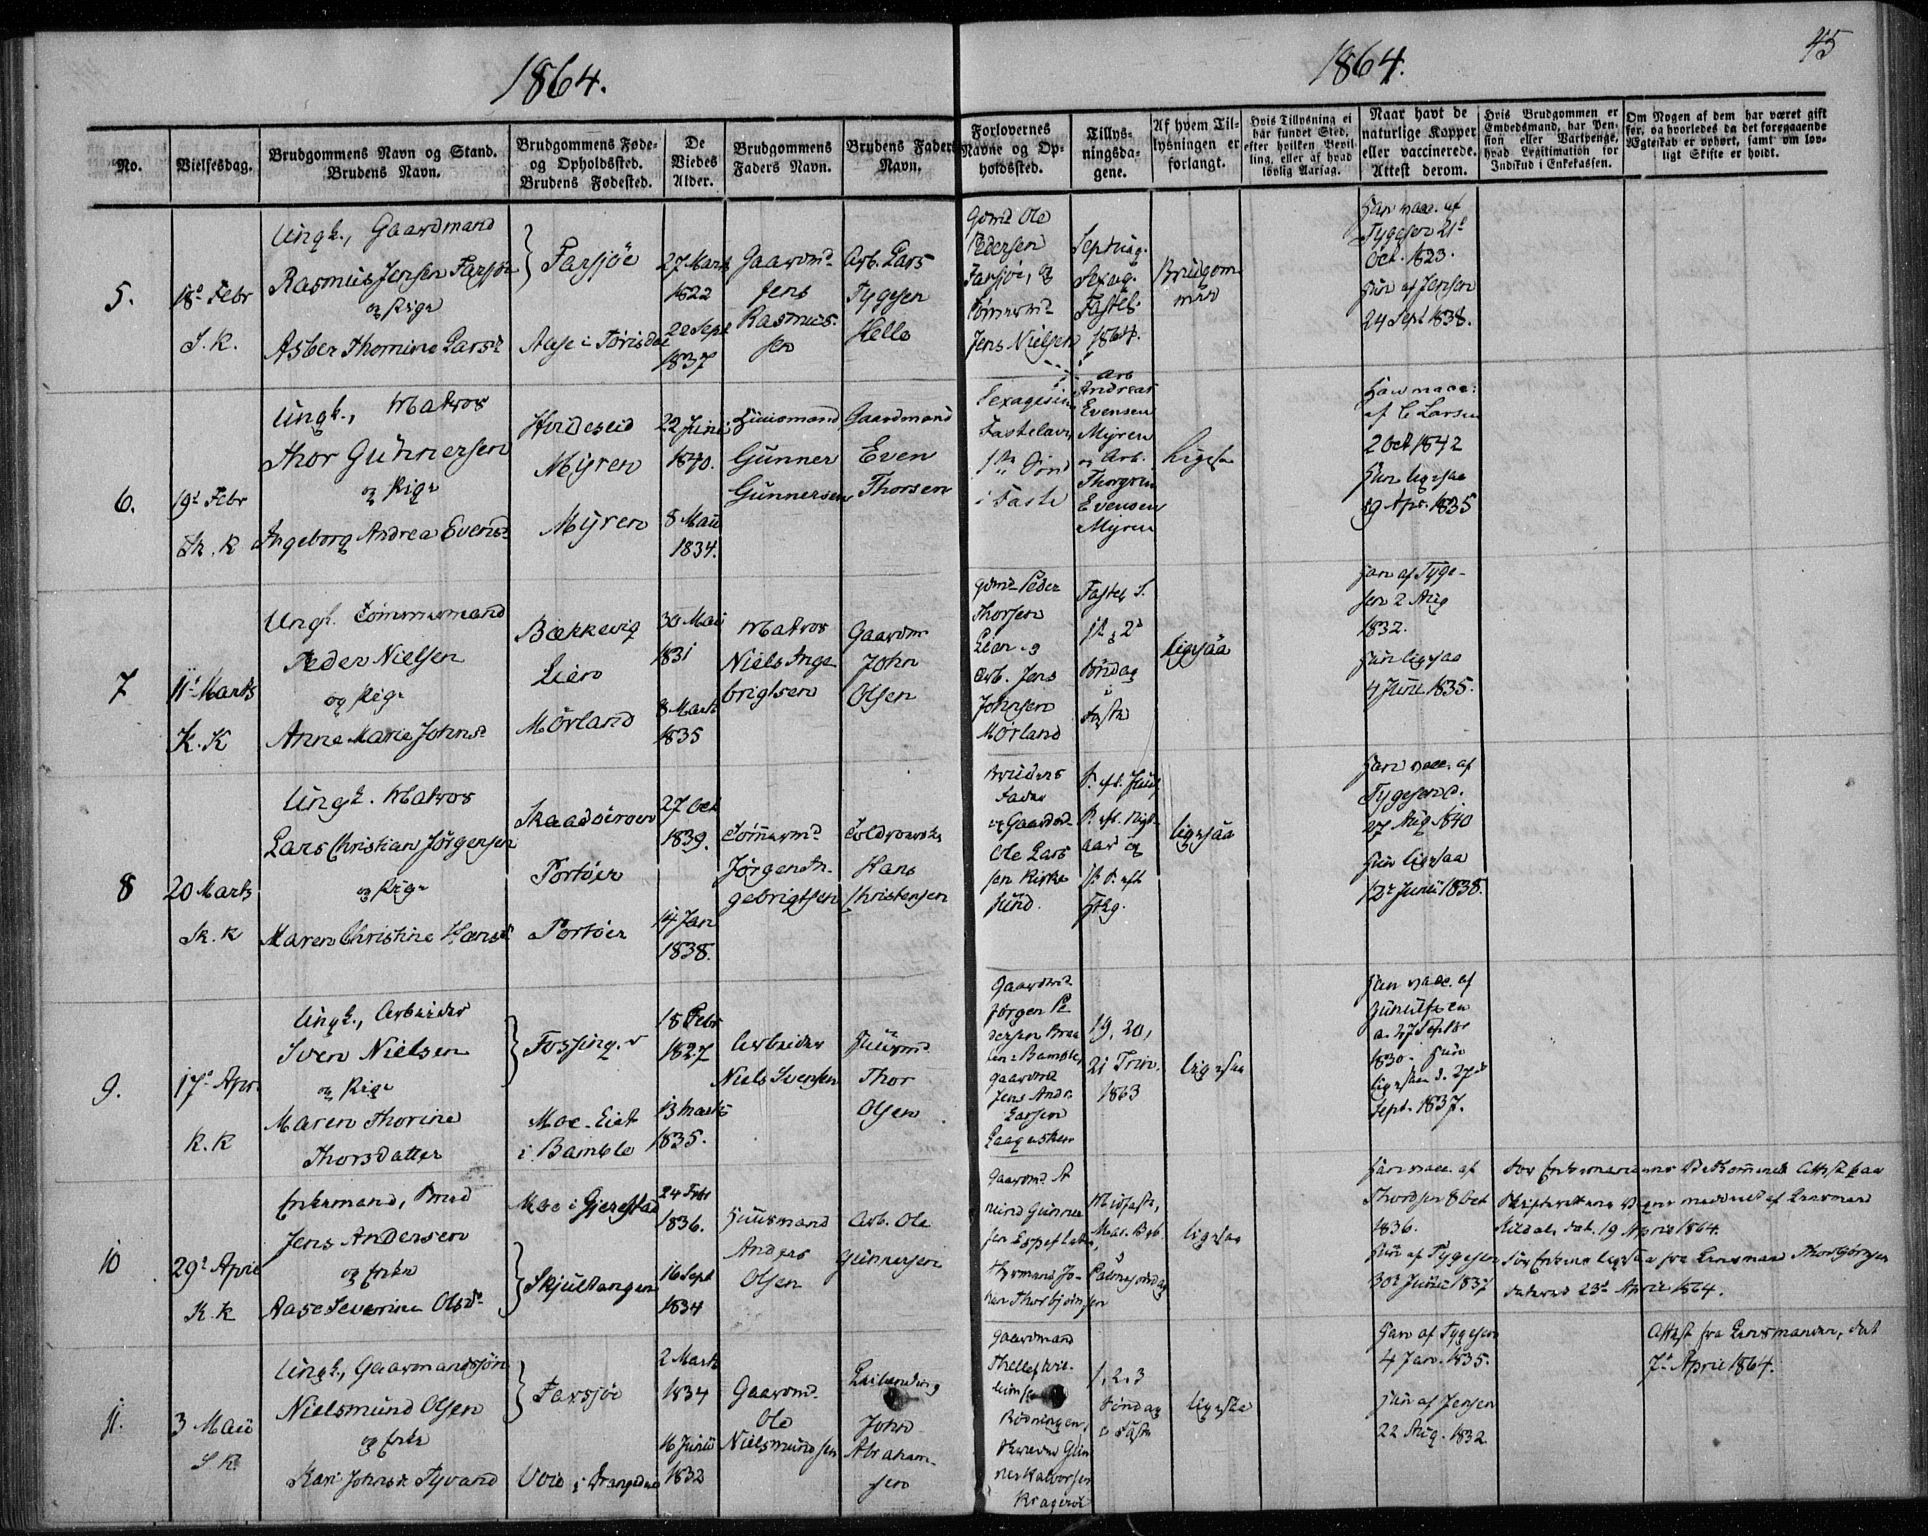 1864.
1864.
45
No.
Vielsesdag.
Brudgommens Navn og Stand.
Brudens Navn.
Brudgommens Føde-
og Opholdssted.
Brudens Fødested.
De
Viedes
Alder.
Brudgommens
Faders Navn.
Brudens Faders
Navn.
Forlovernes
Navne og Op-
holdssted.
Tillys-
ningsda-
gene.
Af hvem Til-
lysningen er
forlangt.
Hvis Tillysning ei
har fundet Sted,
efter hvilken Bevil-
ling, eller af hvad
lovlig Aarsag.
Naar havt de
naturlige Kopper
eller vaccinerede.
Attest derom.
Hvis Brudgommen er
Embedsmand, har Pen-
sion eller Vartpenge,
hvad Legitimation for
Indskud i Enkekassen.
Om Nogen af dem har været gift
før, og hvorledes da det foregaaende
Ægteskab er ophørt, samt om lov-
ligt Skifte er holdt.
5.
18d Febr
S. K.
Ungk., Gaardmand
Rasmus Jensen Farsjøe
og Pige
Asber Thomine Larsd
Farsjøe
Aase i Tørisdal
27 Marts
1822
20 Sept
1837
Gaardmd
Jens
Rasmus-
sen
Arb. Lars
Tygesen
Helle
Gdmd Ole
Pedersen
Farsjøe, og
Tømermd
Jens Nielsen
Septuag.
Sexag.
Fastel.
1864.
Brudgom
men
Han vacc. af
Tygesen 21d
Oct. 1823.
Hun af Jensen
24 Sept 1838.
6.
19d Febr
Sk. K
Ungk., Matros
Thor Gunnersen
og Pige
Ingeborg Andrea Evensd
Hvideseid
Myren
Myren
22 Juni
1840.
8 Maii
1834.
Huusmand
Gunner
Gunnersen
Gaardmand
Even
Thorsen
Sexagesim
Fastelavn
1ste Sønd
i Faste
Arb
Andreas
Evensen
Myren
og Arb.
Evensen
Myren
Ligesaa
Han vacc:
af C Larsen
2 Oct 1842
Hun ligesaa
29 Apr. 1835
7
11d Marts
K. K
Ungk. Tømmermand
Peder Nielsen
og Pige
Anne Marie Johnsd
Bækkevig
Lien
Mørland
30 Maii
1831
8 Marts
1835
Matros
Niels Inge
brigtsen
Gaardm
John
Olsen
Gdmd Peder
Thorsen
Lien og
Arb. Jens
Johnsen
Mørland
Fastel S.
1st & 2d
Søndag
i
Faste
ligesaa
Han af Tyge-
sen 2 Aug
1832.
Hun ligesaa
4 Juni 1835.
8
20 Marts
Sk. K
Ungk. Matros
Lars Christian Jørgensen
og Pige
Maren Christine Hansd
Skaadøiroen
Portøer
Portøer
27 Oct
1839.
14 Jan
1838.
Tømermd
Jørgen In-
gebrigtsen
Hans
Christensen
Brudens
Fader
og Gaardmd
Ole Lars
sen Kirke
sund.
S. eft. Juul,
S. eft. Nyt-
aar og
1st S. eft
H3kg.
ligesaa
Han vacc. af
Tygesen d.
27 Aug 1840
Hun ligesaa
12t Junii 1838.
9.
17d Apr.
K. K
Ungk., Arbeider
Sven Nielsen
og Pige
Maren Thorine
Thorsdatter
Fossing
Moe-Eiet
i Bamble
18 Febr
1827
13 Marts
1835.
Arbeider
Niels Svensen
Huusmd
Thor
Olsen
Gaardmd
Jørgen Pe
dersen
Bamble,
Gaardmd
Jens Andr.
Larsen
19, 20,
21 Trin.
1863
ligesaa
Han vacc. af
a. 27 Septbr
1830. Hun
ligesaa d. 27de
Sept. 1837.
10
29d April
K. K
Enkemand,
Jens Andersen
og Enke
Aase Severine Olsdr
Moe i Gjerestad
Skjultangen
24 Febr
1836.
16 Sept
1834
Huusmand
Anders
Olsen
Arb. Ole
Gunnersen
Midfaste,
Mar. Beb.
&
Palmesøndag
ligesaa
Han vacc. af
Thordsen 8 Oct
1836.
Hun af Tygesen
30d Junii 1837
For Enkemandens Vedkommende Attest fra
Skifterettens meddeelt af Lensmand
dat. 19 April 1864.
For Enkens ligesaa fra Lensmand Thorbjørnsen
dateret 23d April 1864.
11.
3 Maii
S K.
Ungk., Gaardmandssøn
Nielsmund Olsen
og Enke
Kari Johnsdr Tyvand
Farsjøe
Voie i Drangedal
2 Marts
1834
16 Junii
1832
Gaardmd.
Ole
Nielsmundsen
John
Abraham-
sen
Gaardmand
Rødningen,
Halvorsen
Kragerøe
1, 2, 3
Søndag
i Faste
ligesaa
Han af Tygesen
4 Jan. 1835.
Hun af Jensen
22 Aug. 1832
Attest fra Lensmanden, dat
7d April 1864.